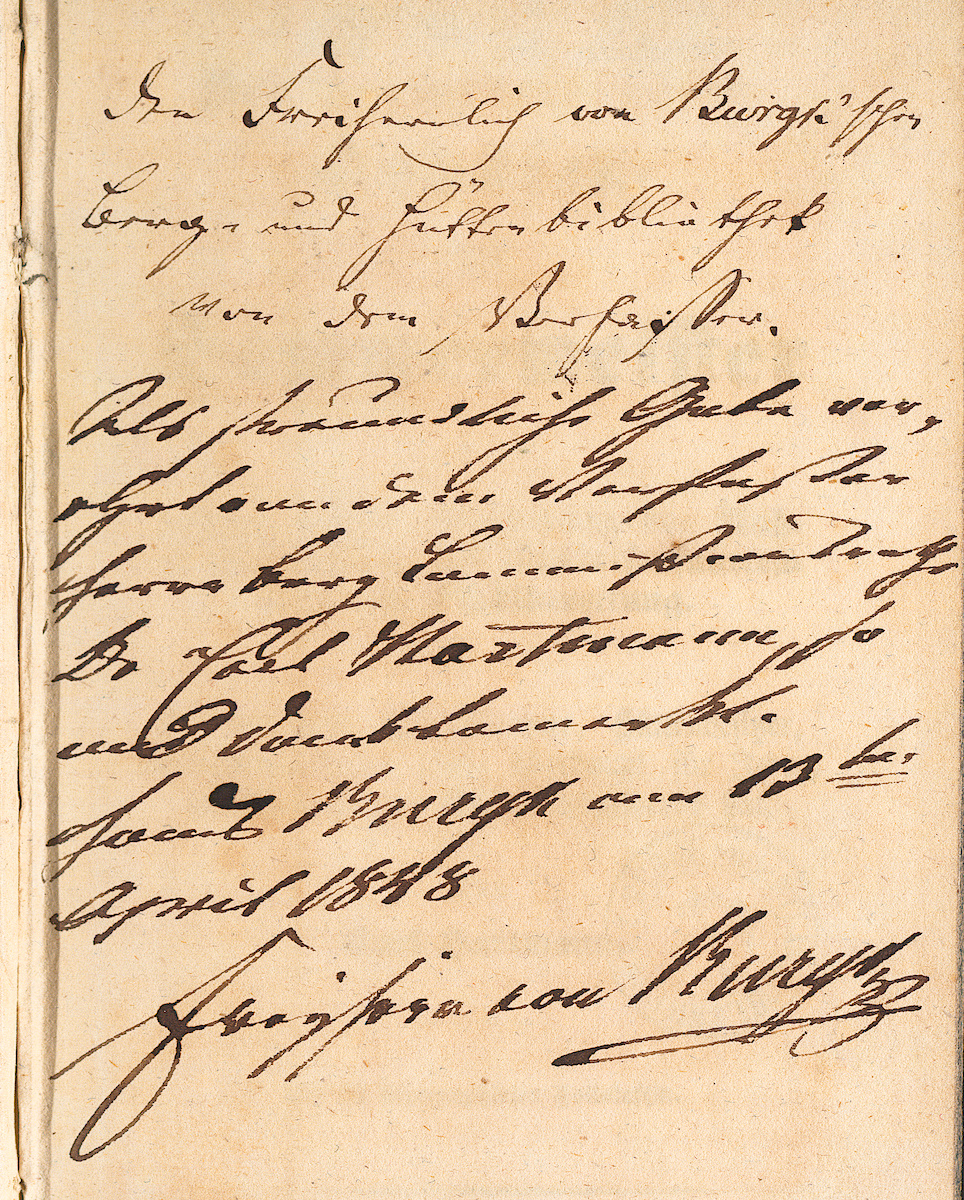 Der Freiherrlich von Burgk'schen
Berg- und Hüttenbibliothek
von dem Verfasser.
Als freundliche Gabe ver-
ehrt von dem Verfasser
Herrn Berg Commissionsrath
Dr Carl Hartmann, so
und dankbar
Haus Burgk am 13ten
April 1848
Freyherr von Burgk